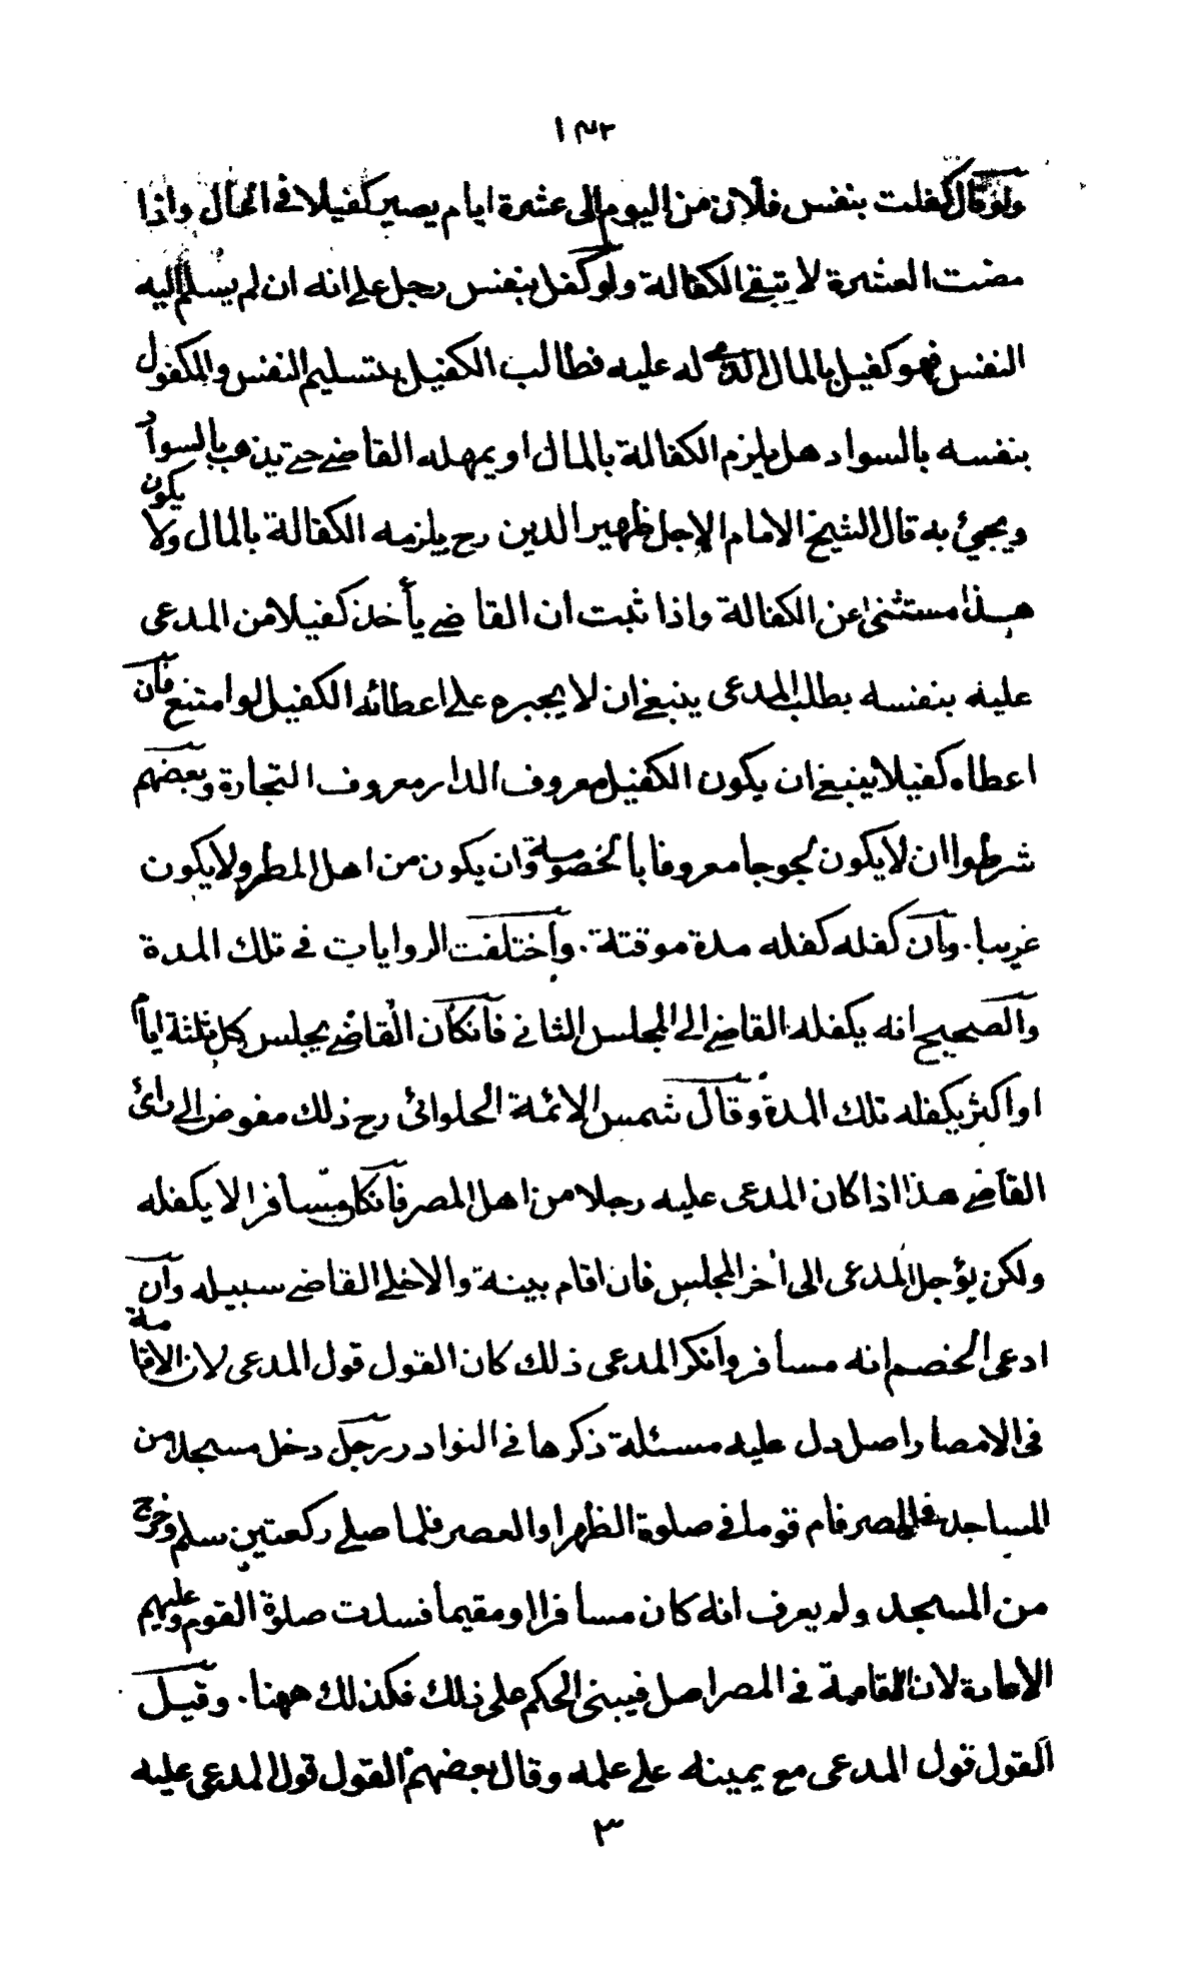 ١٣٢
ولو قال كفلت بنفس فلان من اليوم الى عشرة ايام يصير كفيلا فى الحال واذا
مضت العشرة لا تبقى الكفالة ولو كفل بنفس رجل على انه ان لم يسلم اليه
النفس فهو كفيل بالمال الذى له عليه فطالب الكفيل بتسليم النفس والمكفول
بنفسه بالسواد هل يلزم الكفالة بالمال او يمهله القاضى حتى يذهب بالسواد
ويجئ به قال الشيخ الامام الاجل ظهير الدين رح يلزمه الكفالة بالمال ولا يكون
هذا مستثنى عن الكفالة واذا ثبت ان القاضى يأخذ كفيلا من المدعى
عليه بنفسه بطلب المدعى ينبغى ان لا يجبره على اعطائه الكفيل لو امتنع فان
اعطاه كفيلا ينبغى ان يكون الكفيل معروف الدار معروف التجارة وبعضهم
شرطوا ان لا يكون لجوجا معروفا بالخصومة وان يكون من اهل المصر ولا يكون
غريبا. وان كفله كفله مدة موقتة. واختلفت الروايات فى تلك المدة
والصحيح انه يكفله القاضى الى المجلس الثانى فانكان القاضى يجلس كل ثلثة ايام
او اكثر يكفله تلك المدة وقال شمس الائمة الحلوائى رح ذلك مفوض الى رائ
القاضى هذا اذا كان المدعى عليه رجلا من اهل المصر فانكان مسافرا لا يكفله
ولكن يؤجل المدعى الى أخر المجلس فان اقام بينة والا خلى القاضى سبيله وان
ادعى الخصم انه مسافر وانكر المدعى ذلك كان القول قول المدعى لان الاقامة
فى الامصار اصل دل عليه مسئلة ذكرها فى النوادر رجل دخل مسجدا من
المساجد فى المصر فام قوما فى صلوة الظهر او العصر فلما صلى ركعتين سلم وخرج
من المسجد ولم يعرف انه كان مسافرا او مقيما فسدت صلوة القوم وعليهم
الاعادة لان الاقامة فى المصر اصل فيبنى الحكم على ذلك فكذلك ههنا. وقيل
القول قول المدعى مع يمينه على علمه وقال بعضهم القول قول المدعى عليه
٣